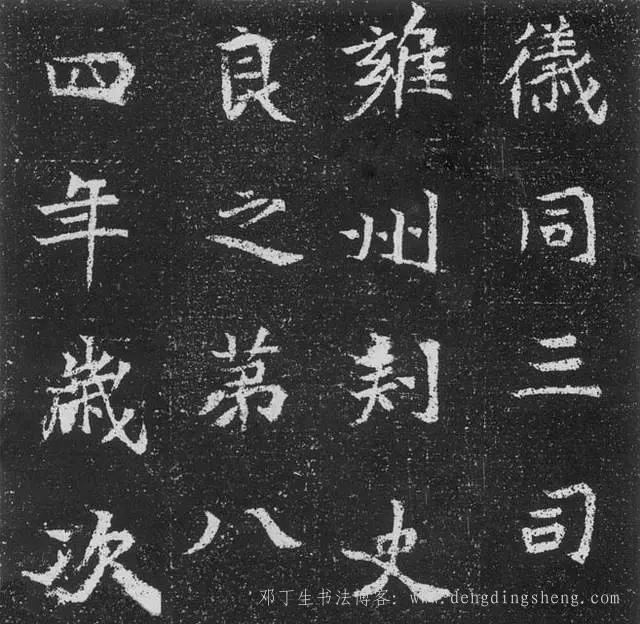 儀同三司
雍州刺史
良之第八
四年歲次
邓丁生书法博客：www.dengdingsheng.com